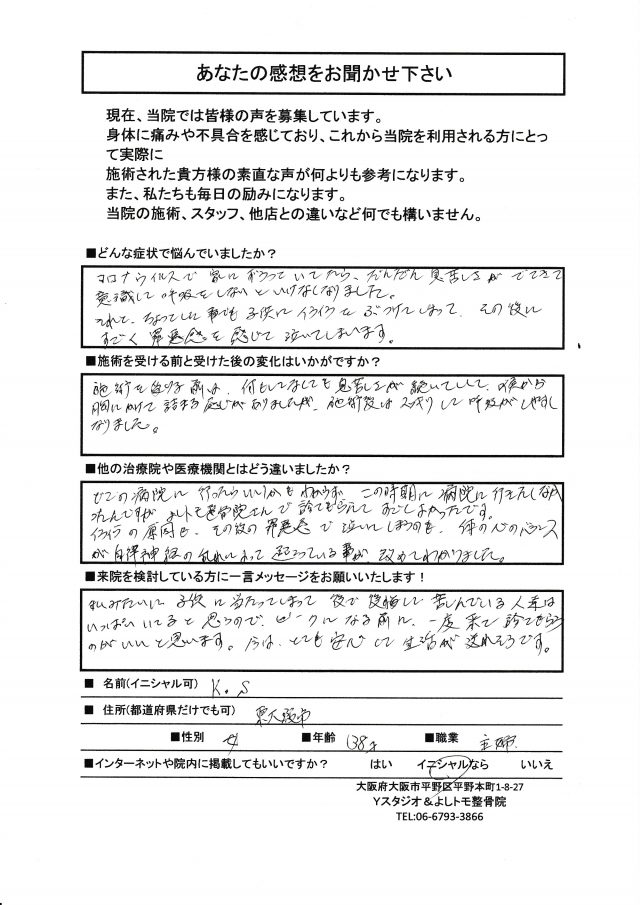 あなたの感想をお聞かせ下さい
現在、当院では皆様の声を募集しています。
身体に痛みや不具合を感じており、これから当院を利用される方にとっ
て実際に
施術された貴方様の素直な声が何よりも参考になります。
また、私たちも毎日の励みになります。
当院の施術、スタッフ、他店との違いなど何でも構いません。
■どんな症状で悩んでいましたか？
コロナウイルスで家にずうっていてたら、だんだん息苦しさがでてきて
意識して呼吸をしないといけなくなりました。
それと、ちょっとした事でも子供にイライラをぶつけてしまって、その後に
すごく罪悪感を感じて泣いてしまいます。
■施術を受ける前と受けた後の変化はいかがですか？
施術を受ける前は、何をしてなくても息苦しさが続いていて、喉から
胸にかけて詰まる感じがありましたが、施術後はスッキリして呼吸がしやすく
なりました。
■他の治療院や医療機関とはどう違いましたか？
どこの病院に行ったらいいかもわからず、この時期に病院に行きたくなか
ったんですが よしトモ整骨院さんで診てもらえてすごくよかったです。
イライラの原因も、その後の罪悪感で泣いてしまうのも、体の心のバランス
が自律神経の乱れによって起こっている事が、改めてわかりました。
■来院を検討している方に一言メッセージをお願いいたします！
私みたいに子供に当たってしまって後で後悔して苦しんでいる人達は
いっぱいいてると思うので、ピークになる前に、一度来て診てもらう
のがいいと思います。今は、とても安心して生活が送れそうです。
■ 名前(イニシャル可) K.S
■ 住所(都道府県だけでも可) 東大阪市
■性別 女 ■年齢 38才 ■職業 主婦
■インターネットや院内に掲載してもいいですか？ はい イニシャルなら いいえ
大阪府大阪市平野区平野本町1-8-27
Yスタジオ＆よしトモ整骨院
TEL:06-6793-3866